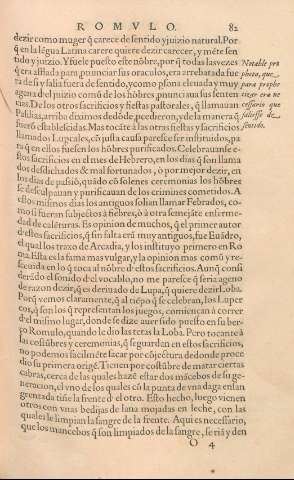 ROMVLO. 82
dezir como muger q̃ carece de sentido y juizio natural. Por
q̃ en la lẽgua Latina carere quiere dezir carecer, y mẽte sen
tido y juizio. Y fuele puesto este nõbre, por q̃ todas las vezes
q̃ era assada para pronunciar sus oraculos, era arrebatada fue
ra de si y falsa de sentido, y como posna eleuada y muy
agena d'l juizio comũ de los hõbres pronunciaua sus senten
cias. De los otros sacrificios y fiestas pastorales, q̃ llamauan
Palilias, arriba diximos de dõde, pcedieron, y de la manera q̃
fuerõ establescidas. Mas tocãte a las otras fiestas y sacrificios
llamados Lupcales, cõ justa causa paresce ser instituidos, pa
ra q̃ en ellos fuesen los hõbres purificados. Celebrauanse e-
stos sacrificios en el mes de Hebrero, en los dias q̃ son llama
dos desdichados & mal fortunados, ò por mejor dezir, en
los dias de passiõ, quãdo cõ solenes ceremonias los hõbres
se desculpauan y purificauan de los crimines cometidos. A
estos mismos dias los antiguos solian llamar Febrados, co-
mo si fueran subjectos à fiebres, ò à otra semejãte enferme-
dad de calẽturas. Es opinion de muchos, q̃ el primer autor
d'estos sacrificios, q̃ sin falta erã muy antiguos, fue Euãdro,
el qual los traxo de Arcadia, y los instituyo primero en Ro
ma. Esta es la fama mas vulgar, y la opinion mas comũ y re-
scebida en lo q̃ toca al nõbre d'estos sacrificios. Aunq̃ consi
derãdo el sonido d'el vocablo, no me paresce q̃ seria ageno
de razon dezir, q̃ es deriuado de Lupus, q̃ quiere dezir Loba.
Porq̃ vemos claramente, q̃ al tiẽpo q̃ se celebran, los Luper
cos, q̃ son los q̃ representan los juegos, comiençan à correr
d'el mismo lugar, donde se dize auer sido puesto en su ber-
ço Romulo, quando le dio las tetas la Loba. Pero tocante à
las costũbres y ceremonias, q̃ se guardan en estos sacrificios,
no podemos facilmẽte sacar por cõjectura de donde proce
dio su primera origẽ. Tienen por costũbre de matar ciertas
cabras, cerca de las quales hazẽ estar dos mãcebos de su ge-
neracion, el vno de los quales cõ la punta de vna daga ensan
grentada tiñe la frente d'el otro. Esto hecho, luego vienen
otros con vnas bedijas de lana mojadas en leche, con las
quales le limpian la sangre de la frente. Aqui es necessario,
que los mancebos q̃ son limpiados de la sangre, se riã y den
O 4
Notable pro
pheta, que
para prophe
tizar era ne
cessario que
saliesse de
sentido.